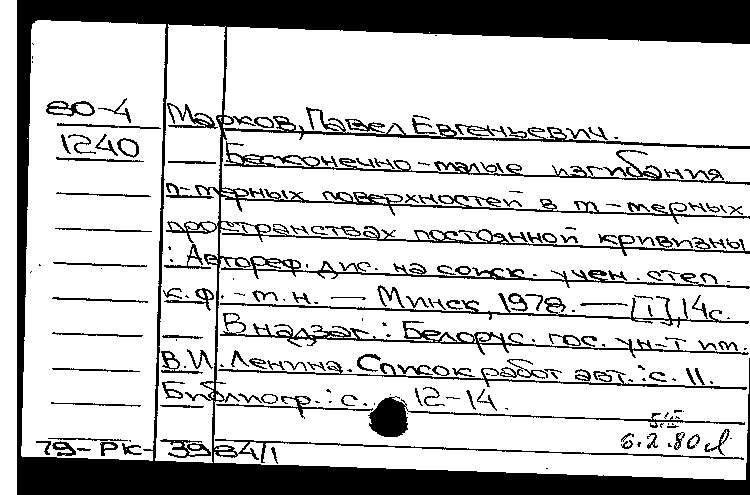 80-4 Марков, Павел Евгеньевич.
1240 Бесконечно-малые изгибания
n-мерных поверхностей в m-мерных
пространствах постоянной кривизны
: Автореф. дис. на соиск. учен. степ.
к.ф.-м.н. — Минск, 1978. — [1], 14 с.
В надзаг.: Белорус. гос. ун-т им.
В.И. Ленина. Список работ авт.: с. 11.
Библиогр.: с. 12-14.
6.2.80
79-РК-3984/1